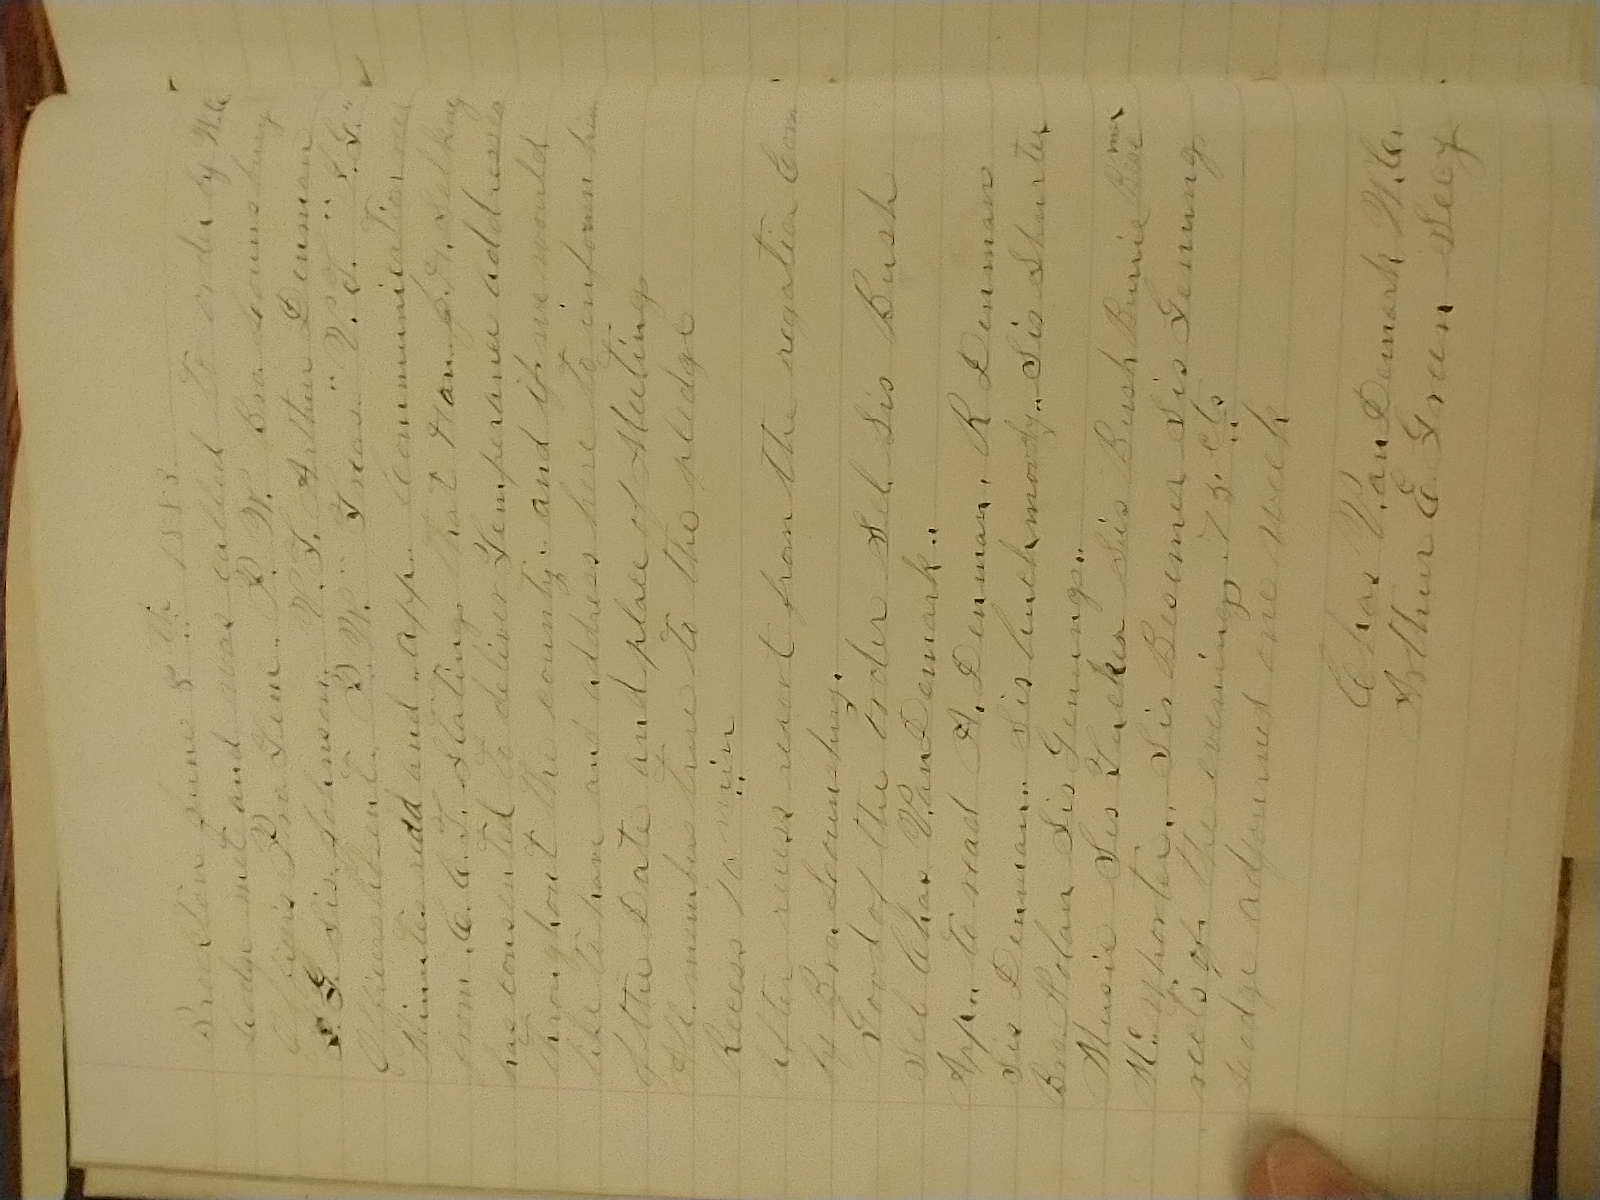 Brookton June 8th 1883.
Lodge met and was called to order by W.C.
Officers Pro Tem.. P. W. Bro. Lounsbury
I. G. Sis. Johnson. V. T. Arthur Denman
Officers Absent. P. W. " Treas. " V. T. " I. G. "
Minutes read and .. app.. Communication rec
from C. C. T. Stating that Hon.
has consented to deliver Temperance addresses
throughout the county.. and if we would
like to have and address here to inform him
of the Date and place of Meeting
All. members true to the pledge
Recess 10 min
After recess report from the regatier Com
by Bro. Lounsbury.
Good of the order Sel. Sis Bush
Sel Chas VanDemark..
App.. to read A. Denman. R Denman
Sis Denman.. Sis Sis Shurter
Bro. Rolan Sis Genungs..
Music Sis Tucker Sis Bush Burrie Besemer
Mc Whorter.. Sis Besemer Sis Genung
rects of the evening .75. cts
Lodge adjourned one week
Chas VanDemark W.C.
Arthur E. Green Secy